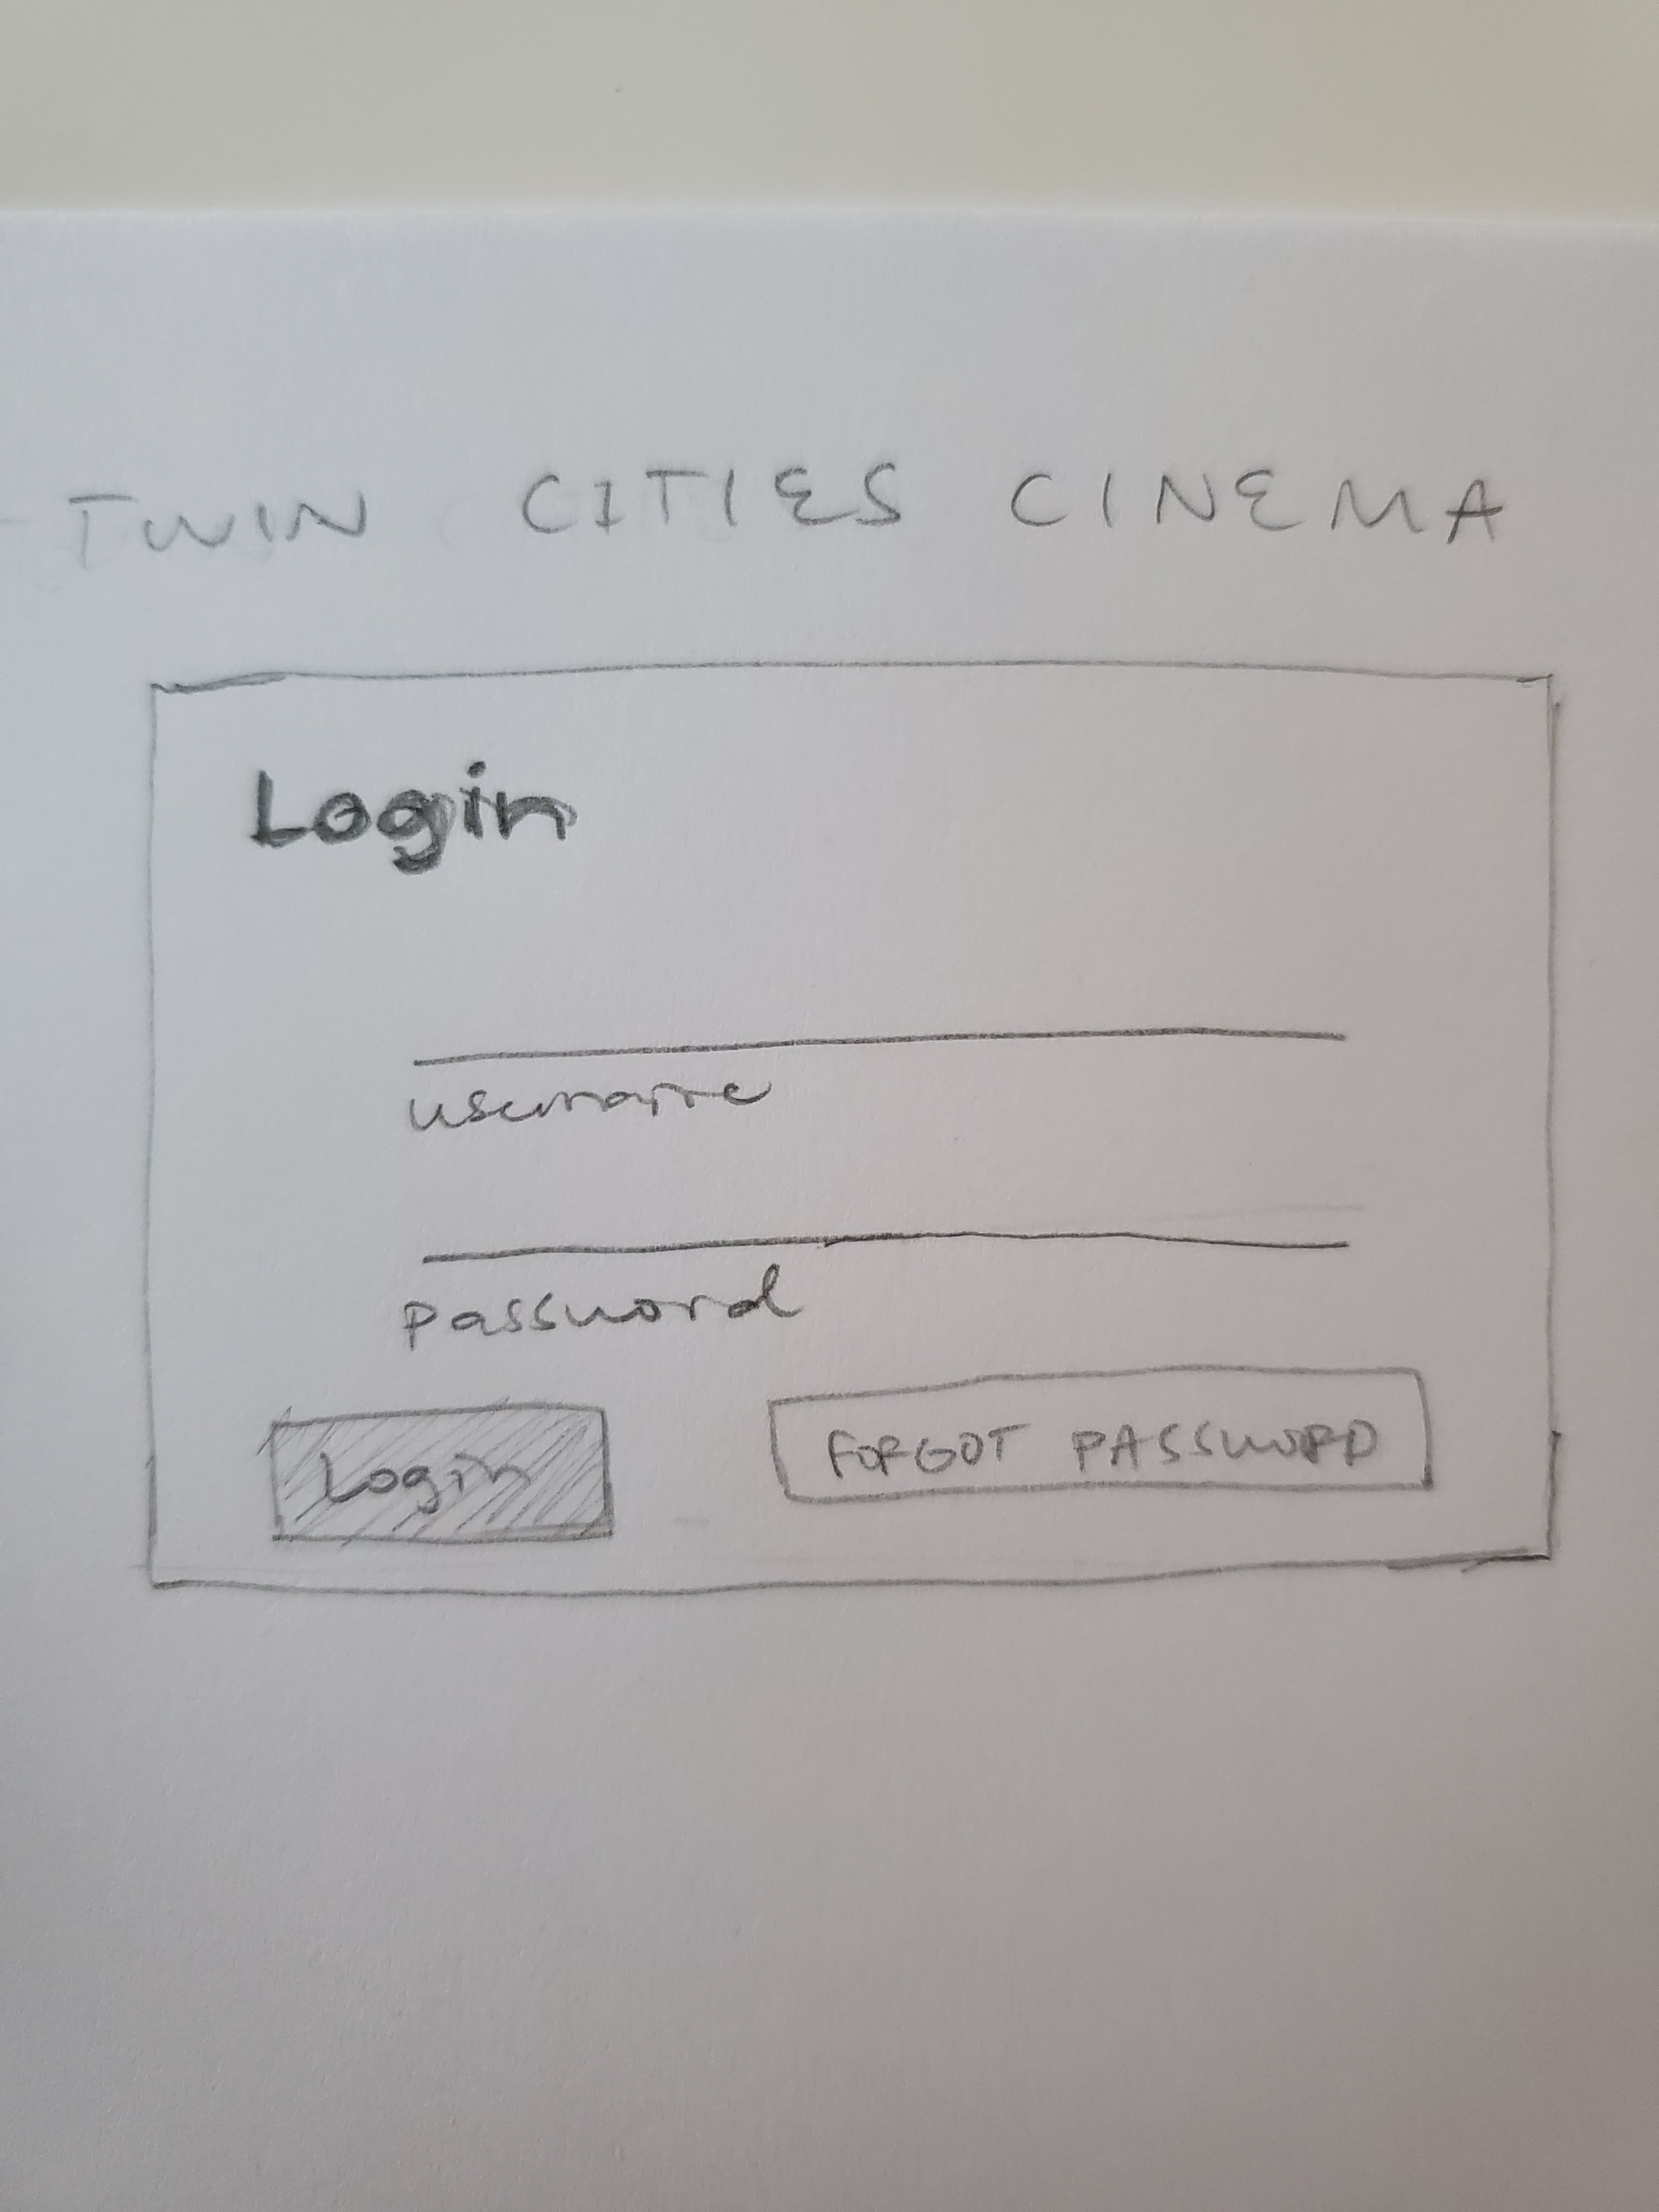 TWIN CITIES CINEMA
Login
username
password
Login
FORGOT PASSWORD